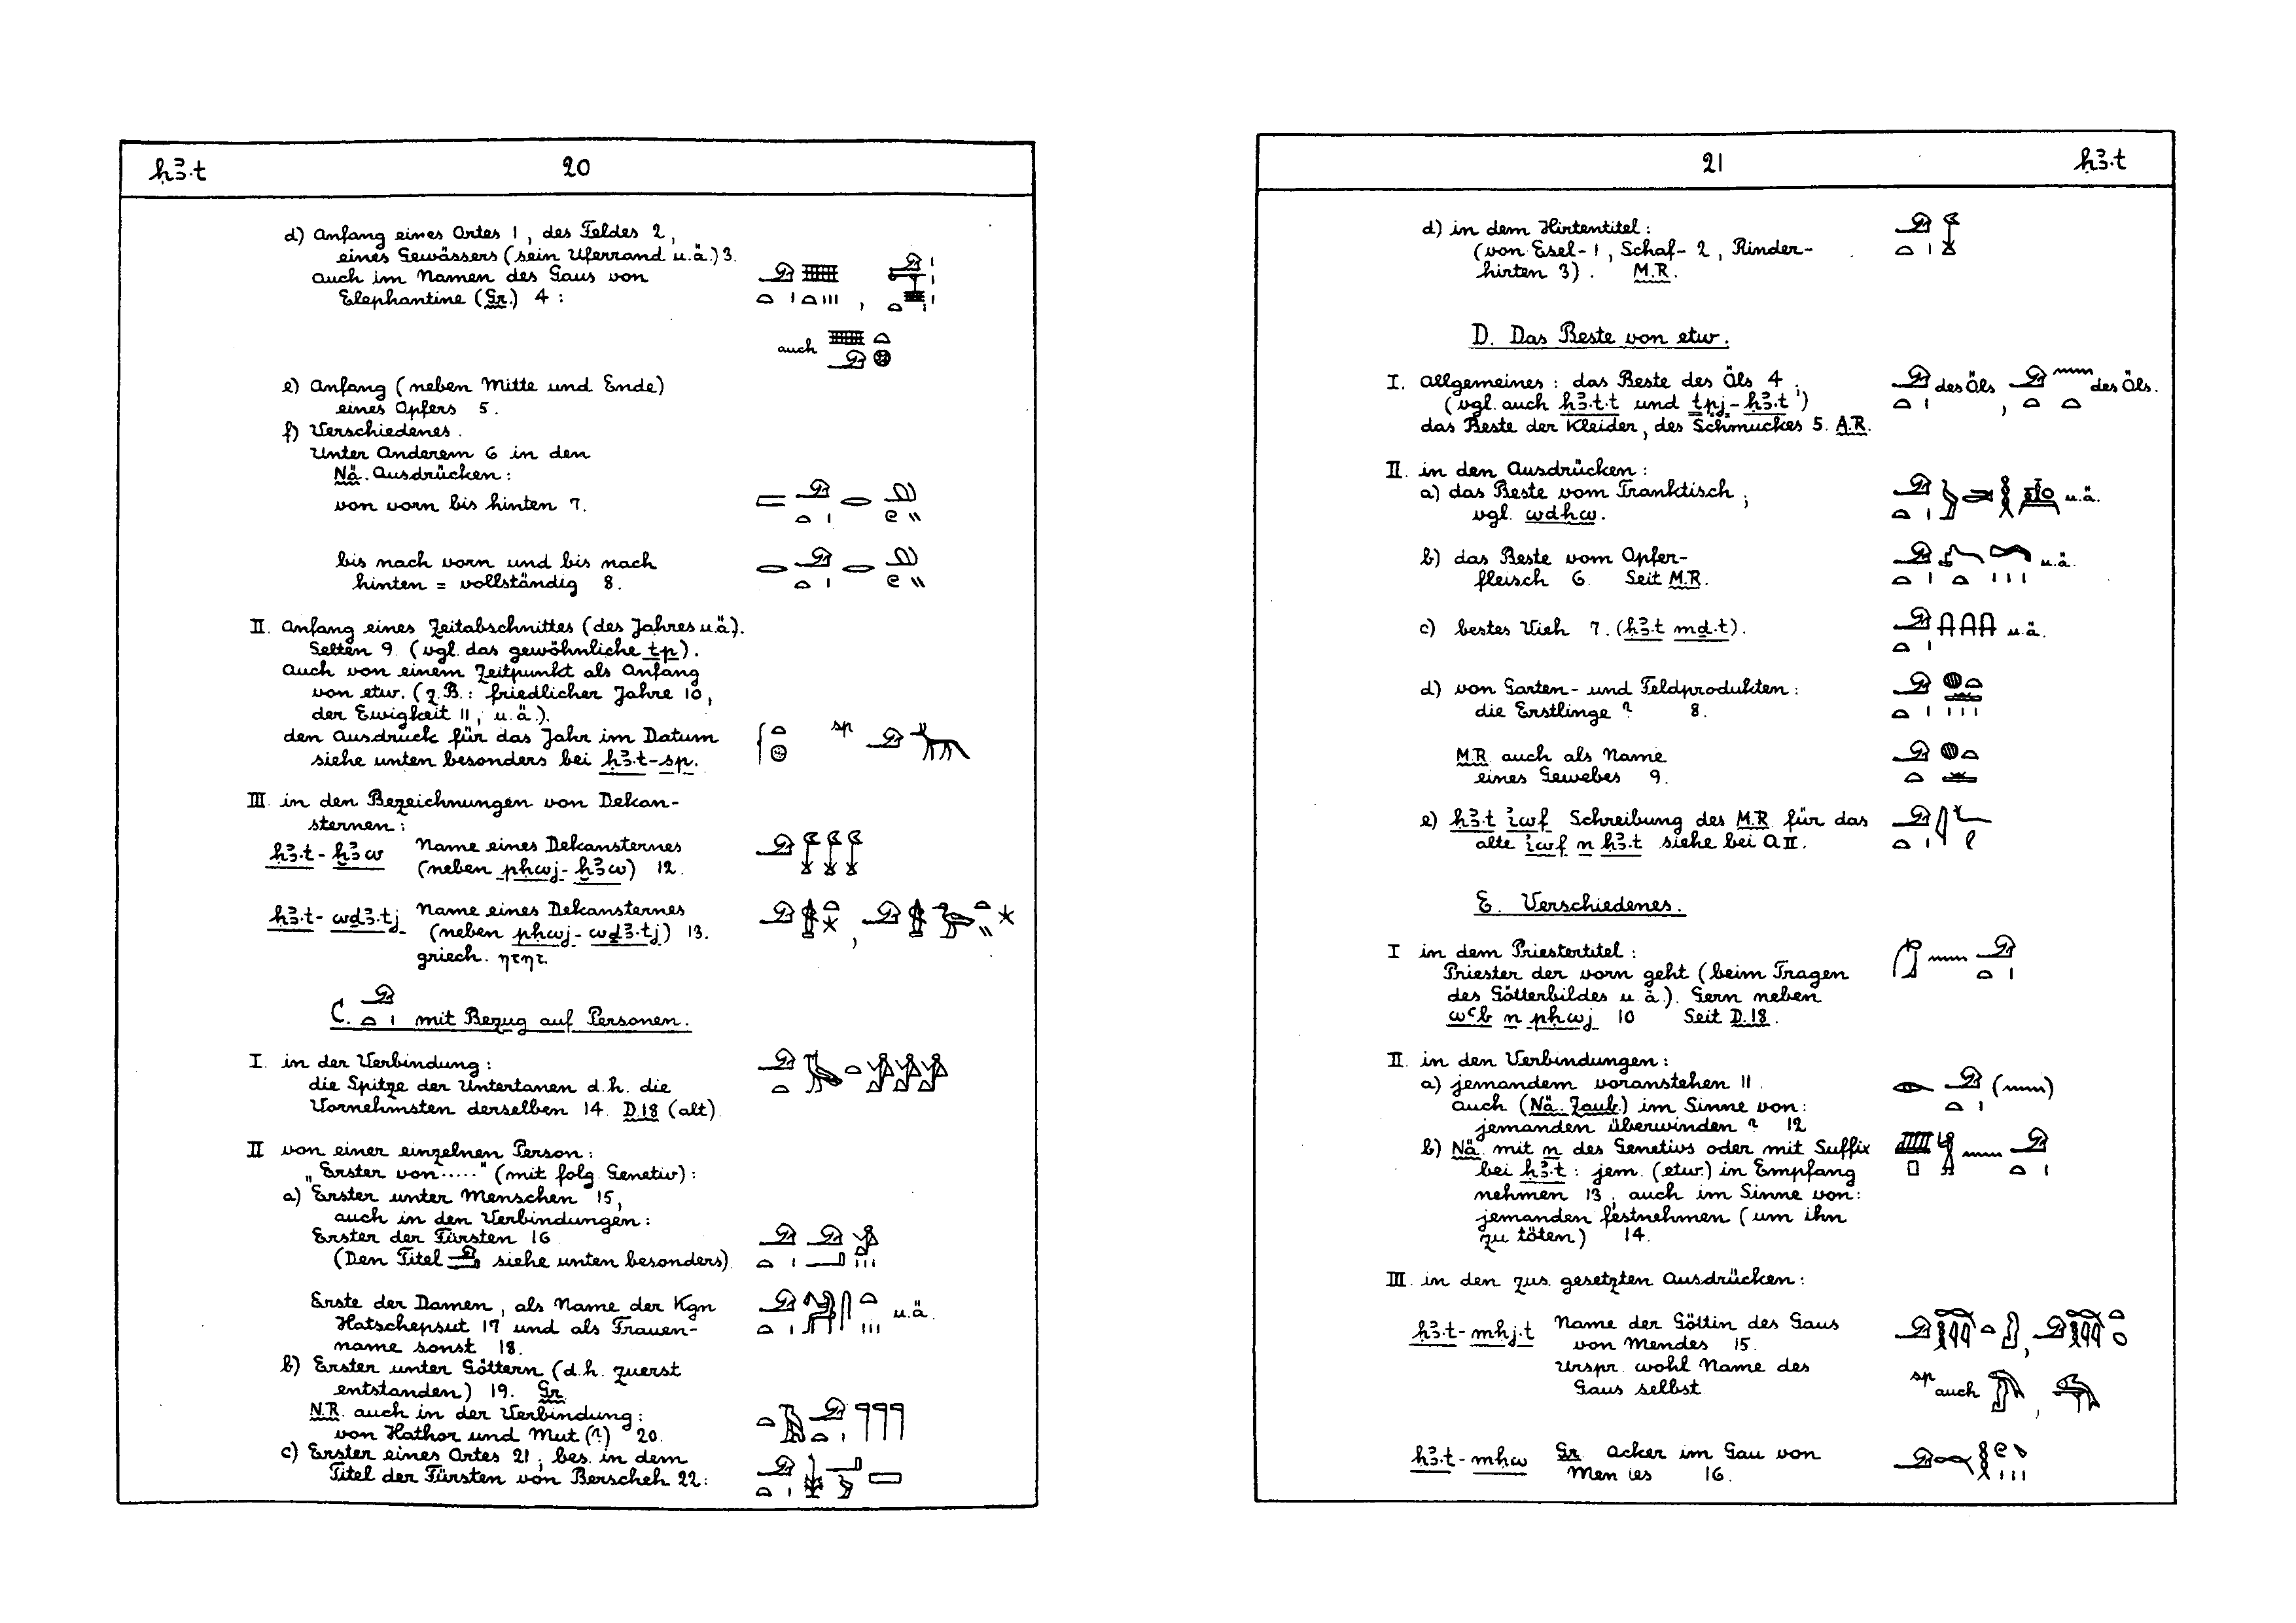 ḥꜣ.t 20
d) Anfang eines Ortes 1, des Feldes 2,
eines Gewässers (sein Uferrand u.ä.) 3.
auch im Namen des Gaus von
Elephantine (Gr.) 4 :
auch
e) Anfang (neben Mitte und Ende)
eines Opfers 5.
f) Verschiedenes.
Unter Anderem 6 in den
Nä. Ausdrücken:
von vorn bis hinten 7.
bis nach vorn und bis nach
hinten = vollständig 8.
II. Anfang eines Zeitabschnittes (des Jahres u.ä.).
Selten 9. (vgl. das gewöhnliche tp).
Auch von einem Zeitpunkt als Anfang
von etw. (z.B.: friedlicher Jahre 10,
der Ewigkeit 11, u.ä.).
den Ausdruck für das Jahr im Datum sp
siehe unten besonders bei ḥꜣ.t-sp.
III. in den Bezeichnungen von Dekan-
sternen:
ḥꜣ.t-ḫꜣw Name eines Dekansternes
(neben pḥwj-ḫꜣw) 12.
ḥꜣ.t-wḏꜣ.tj Name eines Dekansternes
(neben pḥwj-wḏꜣ.tj) 13.
griech. ητητ.
C. mit Bezug auf Personen.
I. in der Verbindung:
die Spitze der Untertanen d.h. die
Vornehmsten derselben 14. D.18 (alt).
II von einer einzelnen Person:
„Erster von....." (mit folg. Genetiv):
a) Erster unter Menschen 15,
auch in den Verbindungen:
Erster der Fürsten 16
(Den Titel siehe unten besonders).
Erste der Damen, als Name der Kgn
Hatschepsut 17 und als Frauen- u.ä.
name sonst 18.
b) Erster unter Göttern (d.h. zuerst
entstanden) 19. Gr.
N.R. auch in der Verbindung:
von Hathor und Mut (?) 20.
c) Erster eines Ortes 21; bes. in dem
Titel der Fürsten von Berscheh 22:
21 ḥꜣ.t
d) in dem Hirtentitel:
(von Esel- 1, Schaf- 2, Rinder-
hirten 3). M.R.
D. Das Beste von etw.
I. Allgemeines: das Beste des Öls 4; des Öls, des Öls.
(vgl. auch ḥꜣ.t.t und tpj-ḥꜣ.t)
das Beste der Kleider, des Schmuckes 5. A.R.
II. in den Ausdrücken:
a) das Beste vom Tranktisch; u.ä.
vgl. wdḥw.
b) das Beste vom Opfer- u.ä.
fleisch 6. Seit M.R.
c) bestes Vieh 7. (ḥꜣ.t mḏ.t). u.ä.
d) von Garten- und Feldprodukten:
die Erstlinge? 8.
M.R. auch als Name
eines Gewebes 9.
e) ḥꜣ.t iwf Schreibung des M.R. für das
alte iwf n ḥꜣ.t siehe bei A II.
E. Verschiedenes.
I in dem Priestertitel:
Priester der vorn geht (beim Tragen
des Götterbildes u.ä.). Gern neben
wꜥb n pḥwj 10 Seit D.18.
II. in den Verbindungen:
a) jemandem voranstehen 11.
auch (Nä. Zaub.) im Sinne von:
jemanden überwinden? 12
b) Nä. mit n des Genetivs oder mit Suffix
bei ḥꜣ.t: jem. (etw.) in Empfang
nehmen 13, auch im Sinne von:
jemanden festnehmen (um ihn
zu töten) 14.
III. in den zus. gesetzten Ausdrücken:
ḥꜣ.t-mḥj.t Name der Göttin des Gaus
von Mendes 15.
Urspr. wohl Name des sp
Gaus selbst auch
ḥꜣ.t-mḥw Gr. Acker im Gau von
16.